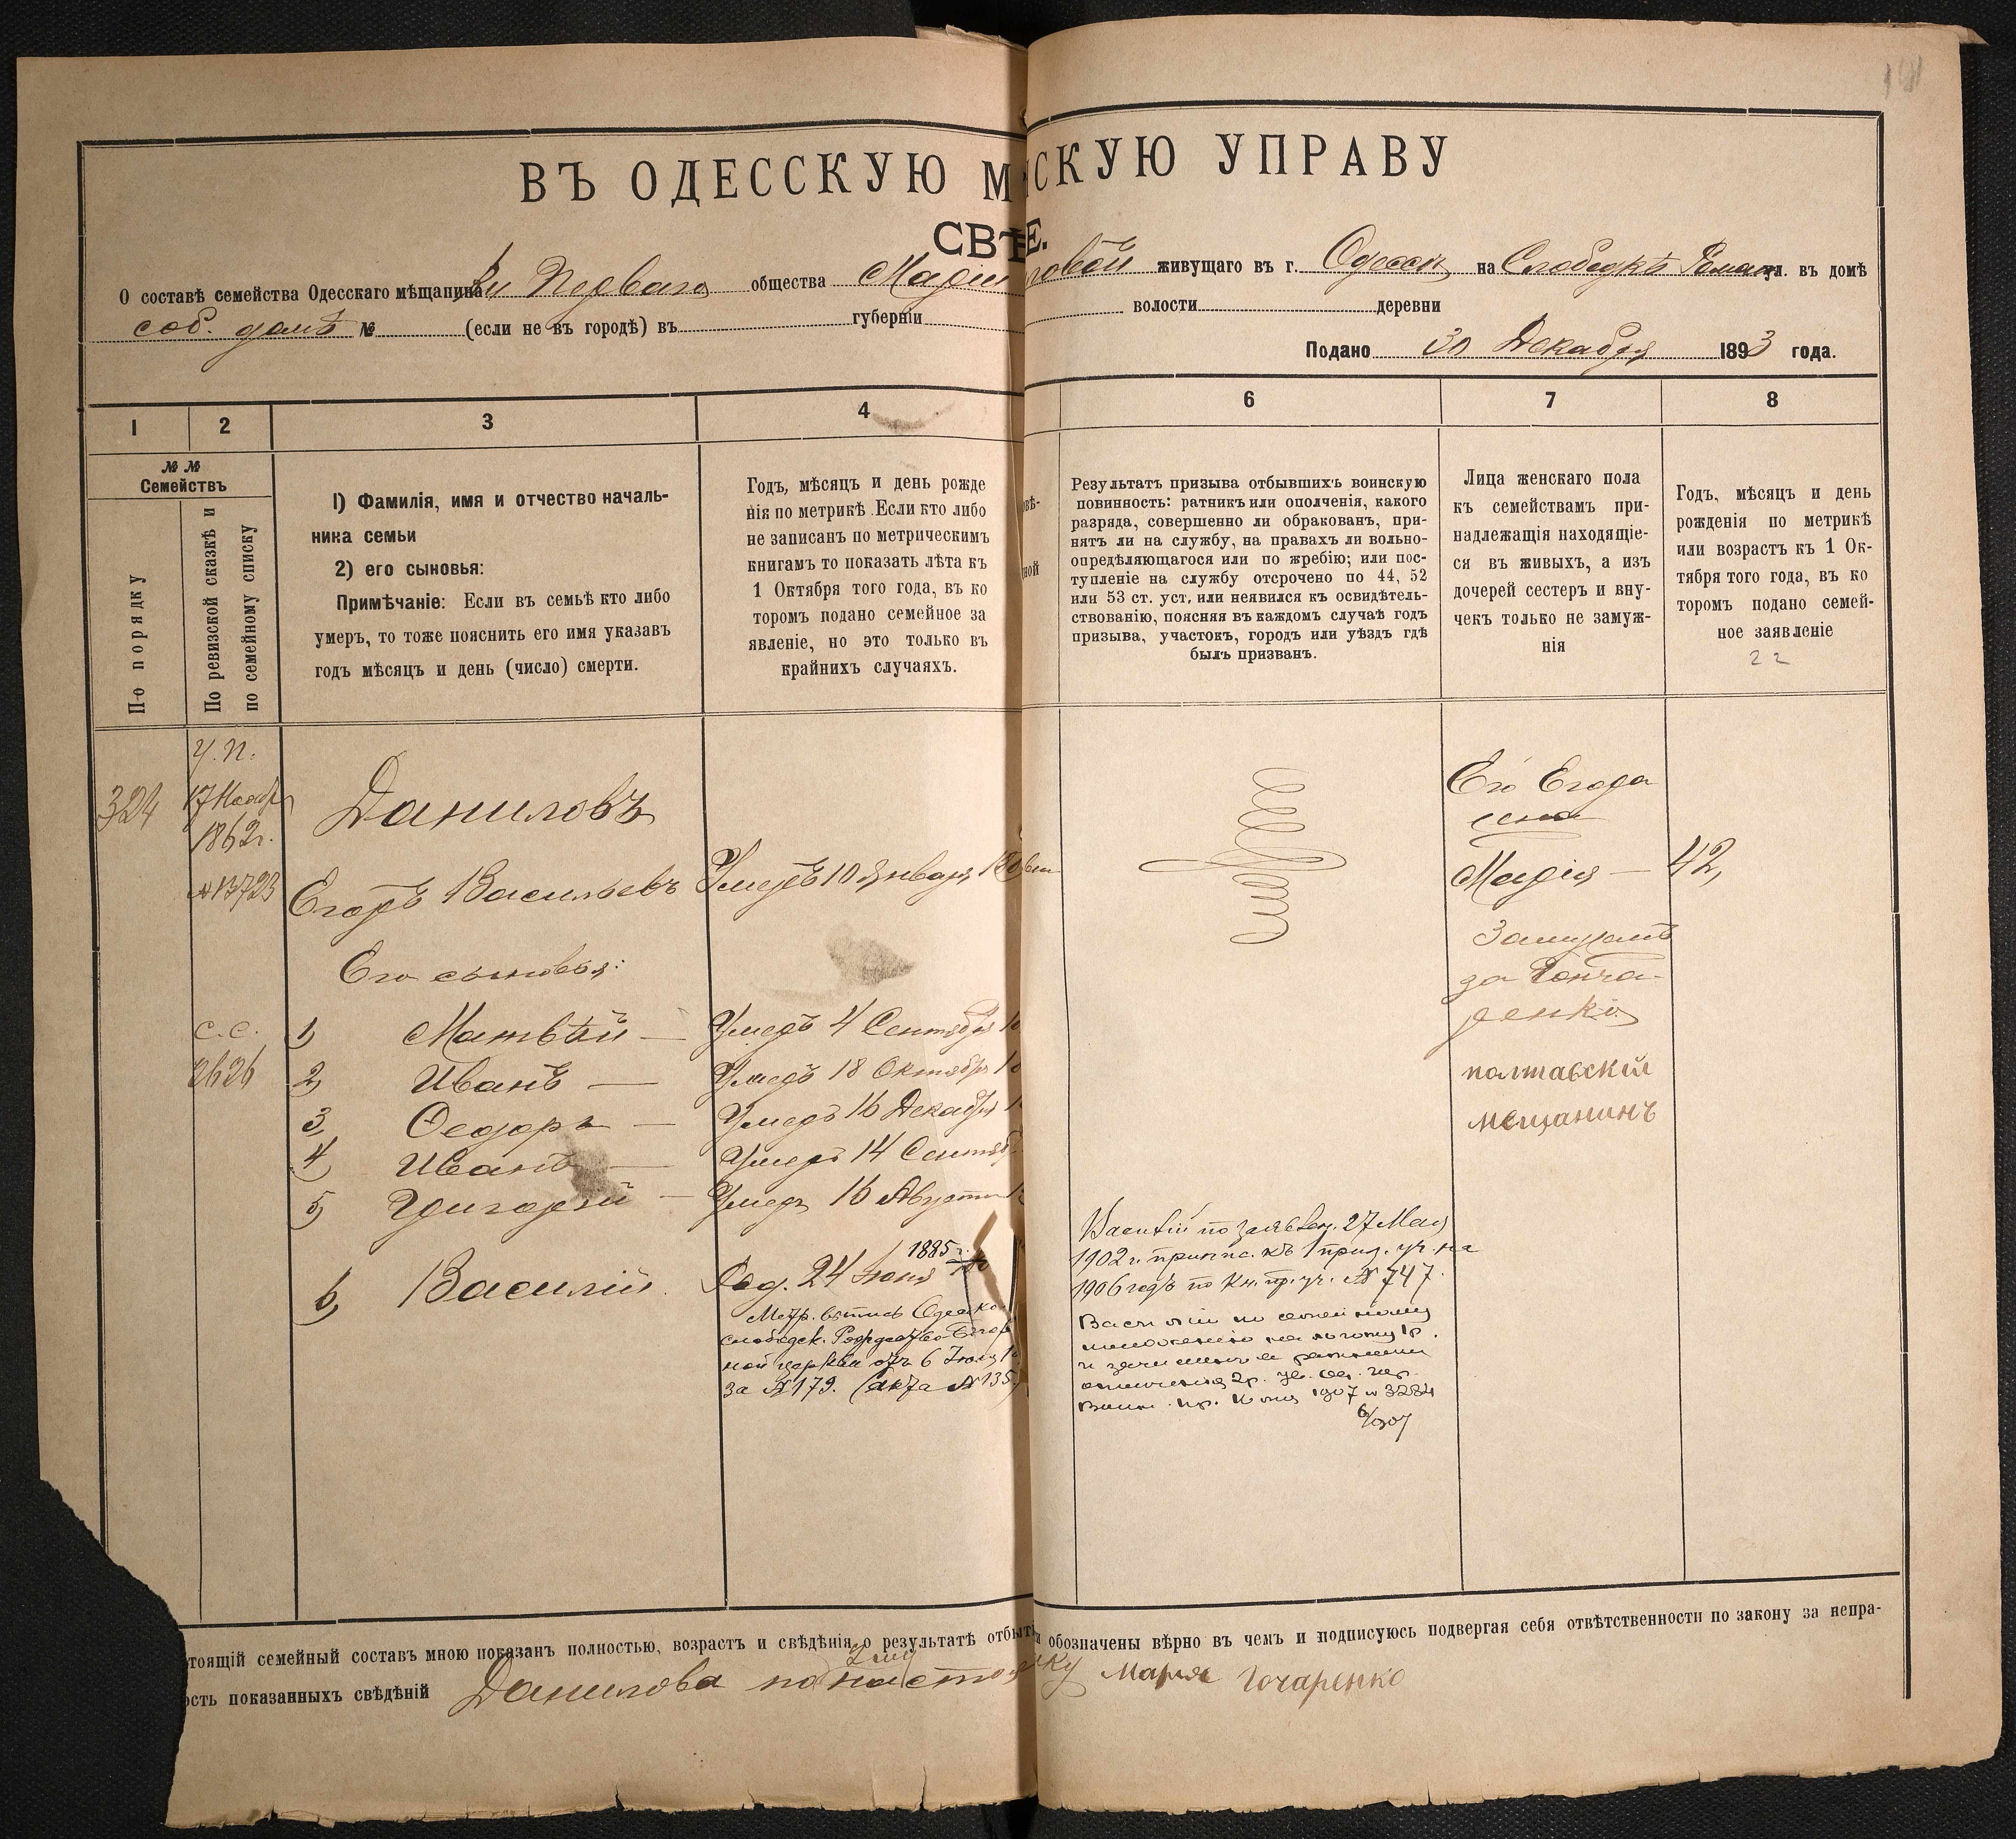 ВЪ ОДЕССКУЮ М СКУЮ УПРАВУ
СВѢ Е.
О составѣ семейства Одесскаго мѣщанина Перваго общества Маріи ровой живущаго въ г. Одессѣ на Слободкѣ Роман ул. въ домѣ
соб. домъ № (если не въ городѣ) въ губерніи волости деревни
Подано 30 Декабря 1893 года.
1 2 3 4 6 7 8
№ № Семействъ
По порядку
По ревизской сказкѣ и по семейному списку
1) Фамилія, имя и отчество началь-
ника семьи
2) его сыновья:
Примѣчаніе: Если въ семьѣ кто либо
умеръ, то тоже пояснить его имя указавъ
годъ мѣсяцъ и день (число) смерти.
Годъ, мѣсяцъ и день рожде
нія по метрикѣ. Если кто либо
не записанъ по метрическимъ
книгамъ то показать лѣта къ
1 Октября того года, въ ко
торомъ подано семейное за
явленіе, но это только въ
крайнихъ случаяхъ.
овѣ-
ной
Результатъ призыва отбывшихъ воинскую
повинность: ратникъ или ополченія, какого
разряда, совершенно ли обракованъ, при-
нятъ ли на службу, на правахъ ли вольно-
опредѣляющагося или по жребію; или пос-
тупленіе на службу отсрочено по 44, 52
или 53 ст. уст, или неявился къ освидѣтель-
ствованію, поясняя въ каждомъ случаѣ годъ
призыва, участокъ, городъ или уѣздъ гдѣ
былъ призванъ.
Лица женскаго пола
къ семействамъ при-
надлежащія находящіе-
ся въ живыхъ, а изъ
дочерей сестеръ и вну-
чекъ только не замуж-
нія
Годъ, мѣсяцъ и день
рожденія по метрикѣ
или возрастъ къ 1 Ок-
тября того года, въ ко
торомъ подано семей-
ное заявленіе
22
324
У. П.
17 Ноябр
1862 г.
№ 13723
Даниловъ
Егоръ Васильевъ Умеръ 10 Января
Его сыновья:
с. с.
2626
1) Матвѣй — Умеръ 4 Сентября
2) Иванъ — Умеръ 18 Октября
3) Ѳедоръ — Умеръ 16 Декабря
4) Иванъ — Умеръ 14 Сентяб
5) Григорій — Умеръ 16 Августа
6) Василій Род. 24 Іюня 1885 г.
Метр. выпись Одесско
слободск. Рождество-Богор
ной церкви отъ 6 Іюля
за № 179. (акта № 135)
Его Егора
жена
Марія — 42,
Замужемъ
за Гонча-
ренко
полтавскій
мѣщанинъ
Василій по заявлен. 27 Мая
1902 г. припис. къ 1 приз. уч. на
1906 годъ по кн. пр. уч. № 747.
Василій по семейному
положенію на льготу 1 р.
и зачисленъ ратникомъ
ополченія 2 р. Од. гор.
Воин. пр. 1907 № 3284
6/ 907
тоящій семейный составъ мною показанъ полностью, возрастъ и свѣдѣнія о результатѣ отбыт обозначены вѣрно въ чемъ и подписуюсь подвергая себя отвѣтственности по закону за непра-
ость показанныхъ свѣдѣній Данилова по настоя Мария Гочаренко